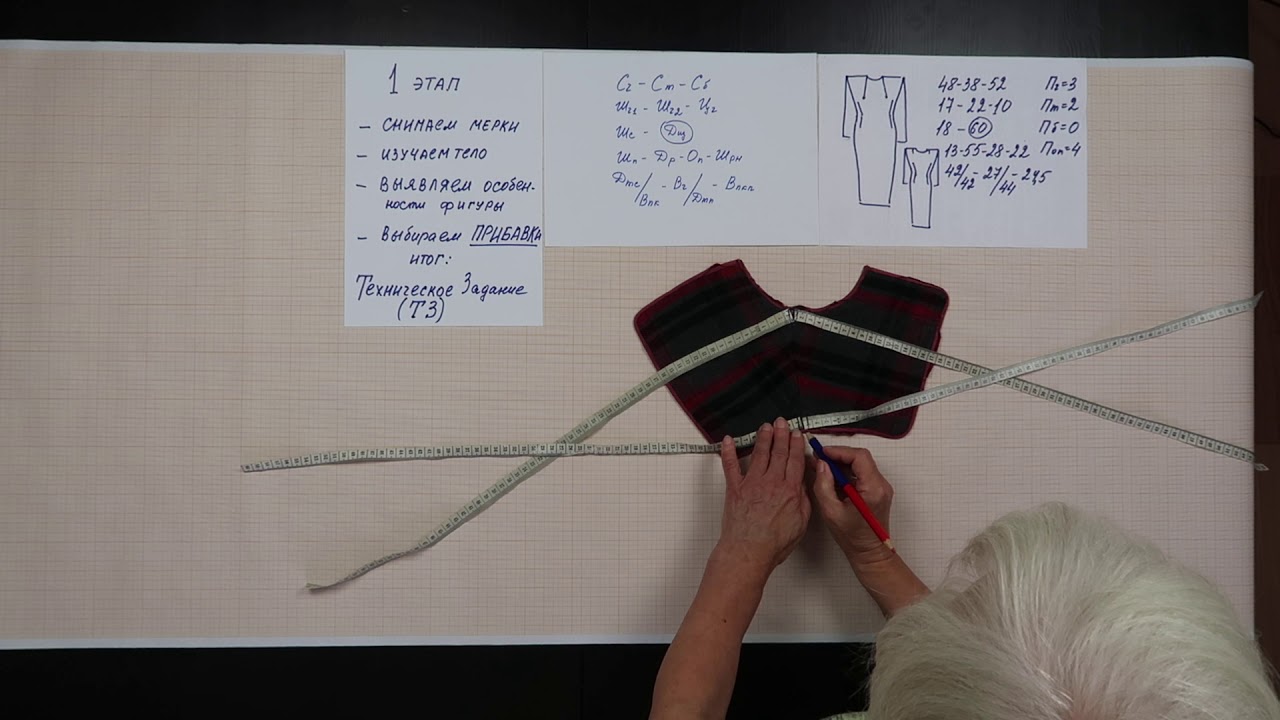 1 ЭТАП
- СНИМАЕМ МЕРКИ
- ИЗУЧАЕМ ТЕЛО
- ВЫЯВЛЯЕМ ОСОБЕН-
НОСТИ ФИГУРЫ
- ВЫБИРАЕМ ПРИБАВКИ
ИТОГ:
Техническое Задание
(ТЗ)
Сг - Ст - Сб
Шг1 - Шг2 - Цг
Шс - Диз
Шп - Др - Оп - Шрн
Дтс/Впк - Вг/Дтп - Впкп
48-38-52 Пг=3
17-22-10 Пт=2
18-60 Пб=0
13-55-28-22 Поп=4
42/42-27/44-24,5